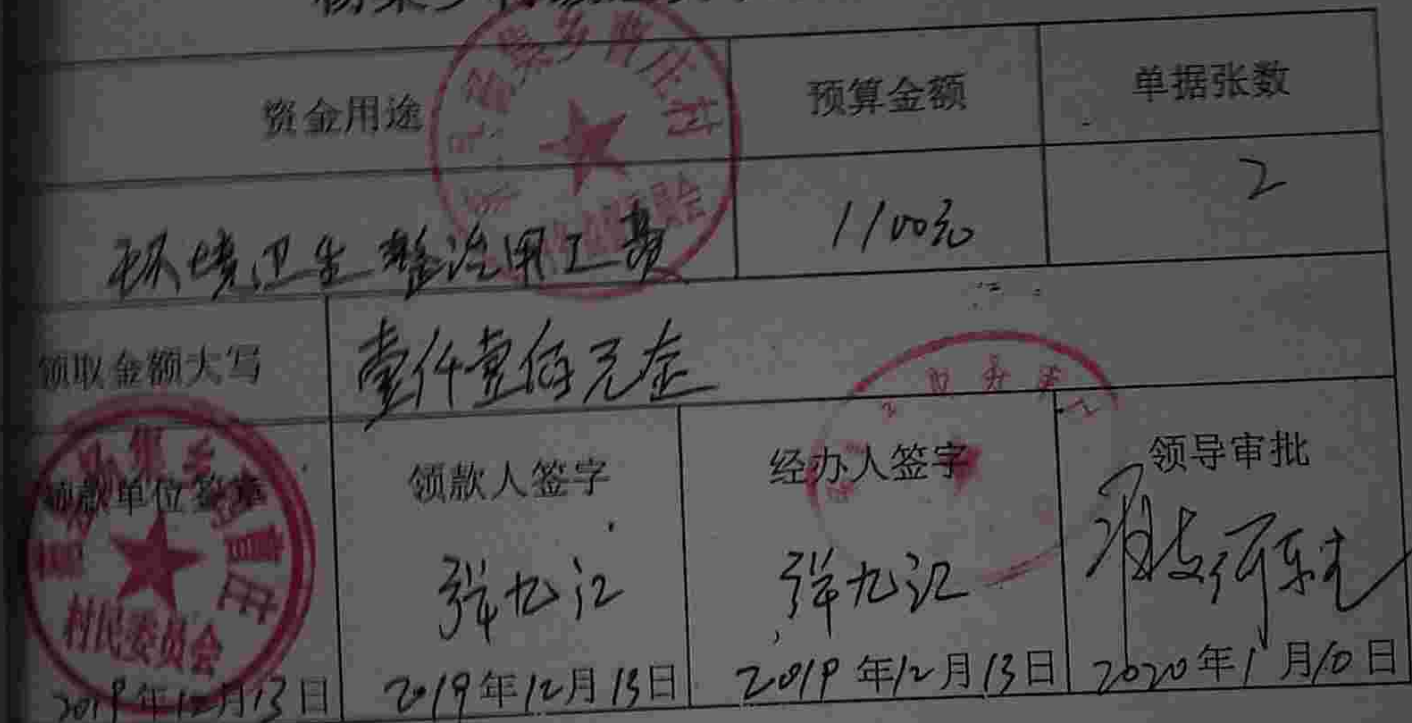 资金用途 预算金额 单据张数
环境卫生整治用工费 1100元 2
领取金额大写 壹仟壹佰元左
领款单位签章 领款人签字 经办人签字 领导审批
张九江 张九江
村民委员会
2019年12月13日 2019年12月13日 2019年12月13日 2020年1月10日